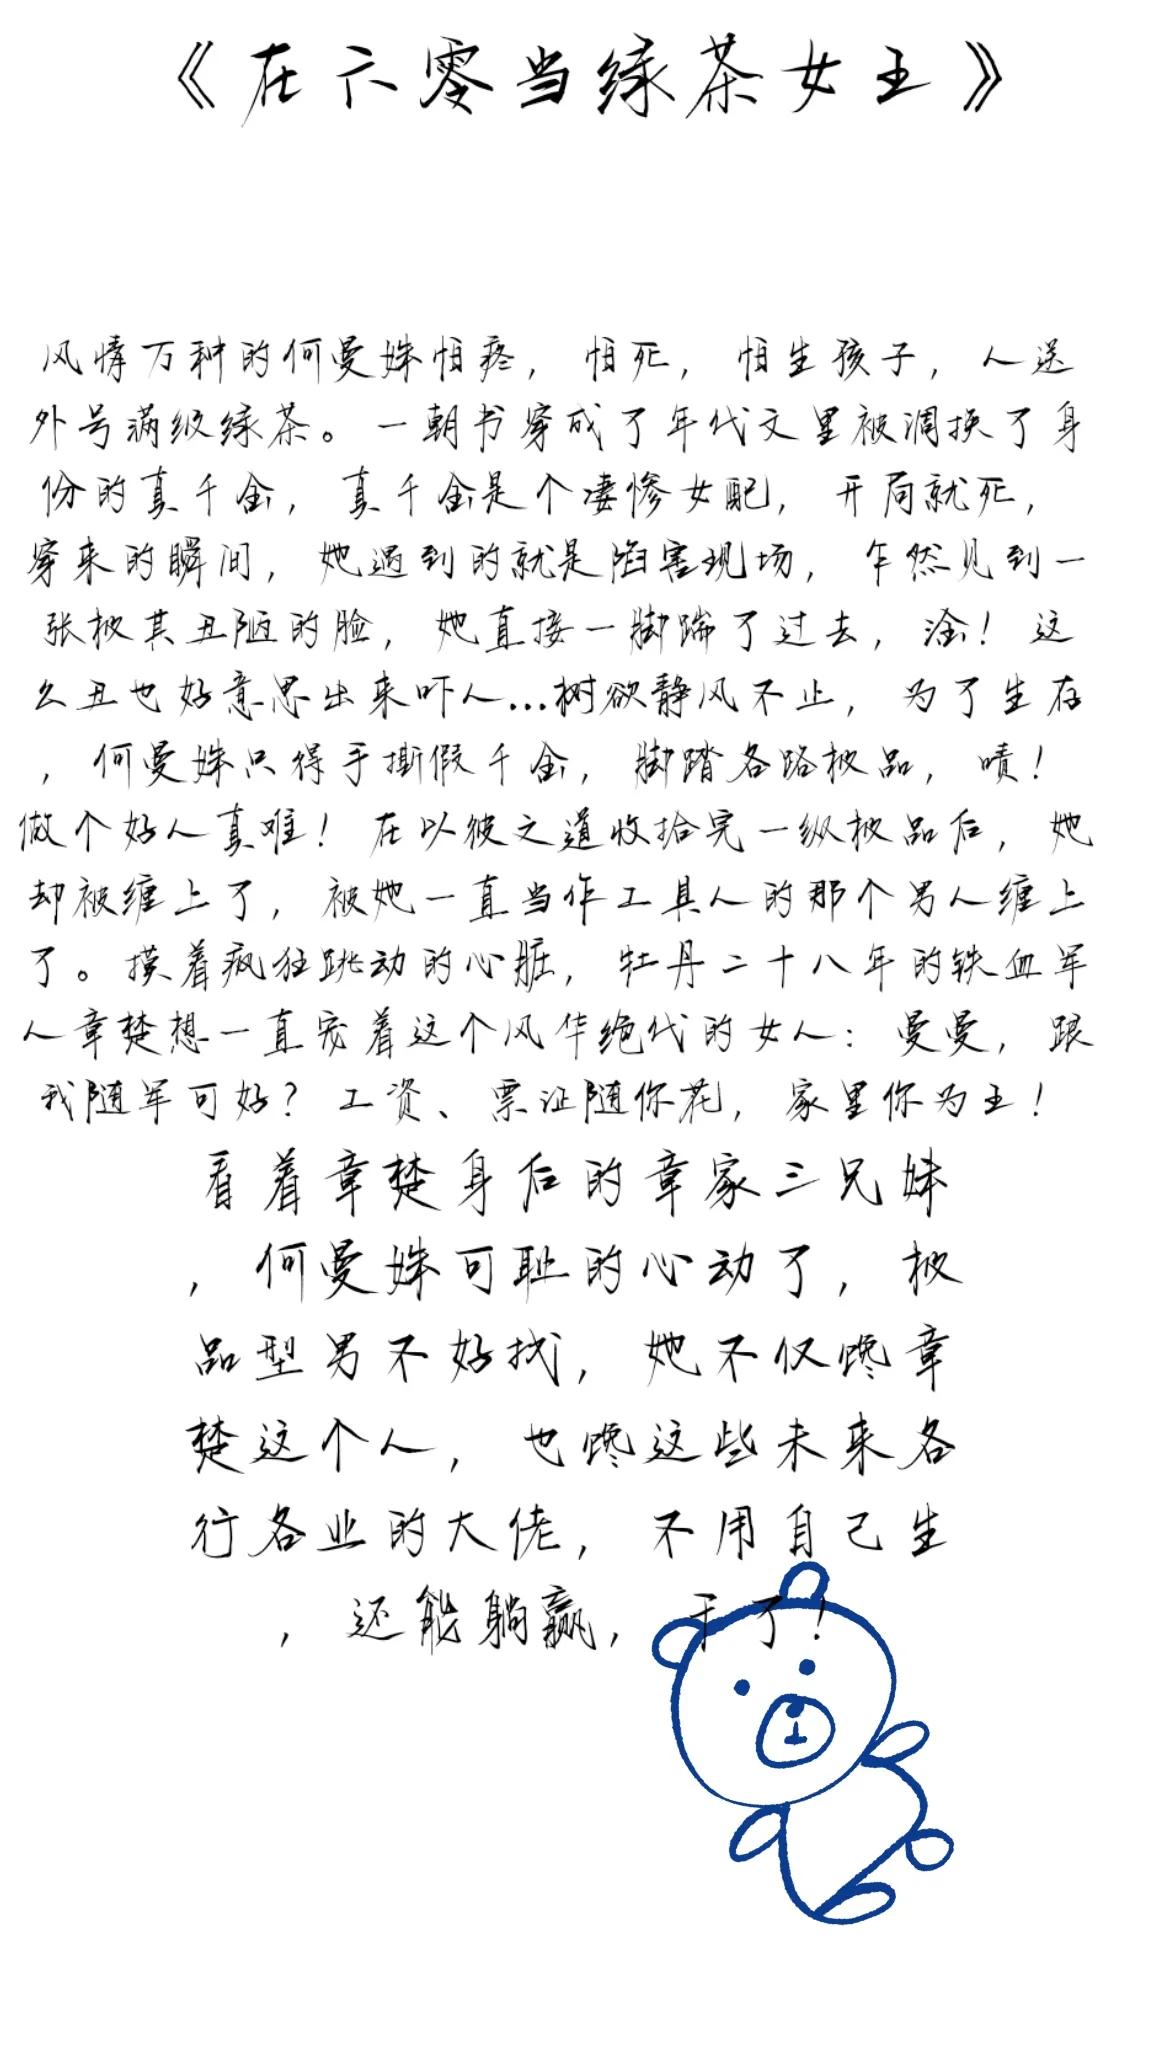 《在六零当绿茶女王》
风情万种的何曼姝怕疼，怕死，怕生孩子，人送
外号满级绿茶。一朝书穿成了年代文里被调换了身
份的真千金，真千金是个凄惨女配，开局就死，
穿来的瞬间，她遇到的就是陷害现场，乍然见到一
张极其丑陋的脸，她直接一脚踹了过去，淦！这
么丑也好意思出来吓人...树欲静风不止，为了生存
，何曼姝只得手撕假千金，脚踏各路极品，啧！
做个好人真难！在以彼之道收拾完一纵极品后，她
却被缠上了，被她一直当作工具人的那个男人缠上
了。摸着疯狂跳动的心脏，牡丹二十八年的铁血军
人章楚想一直宠着这个风华绝代的女人：曼曼，跟
我随军可好？工资、票证随你花，家里你为主！
看着章楚身后的章家三兄妹
，何曼姝可耻的心动了，极
品型男不好找，她不仅馋章
楚这个人，也馋这些未来各
行各业的大佬，不用自己生
，还能躺赢，干了！